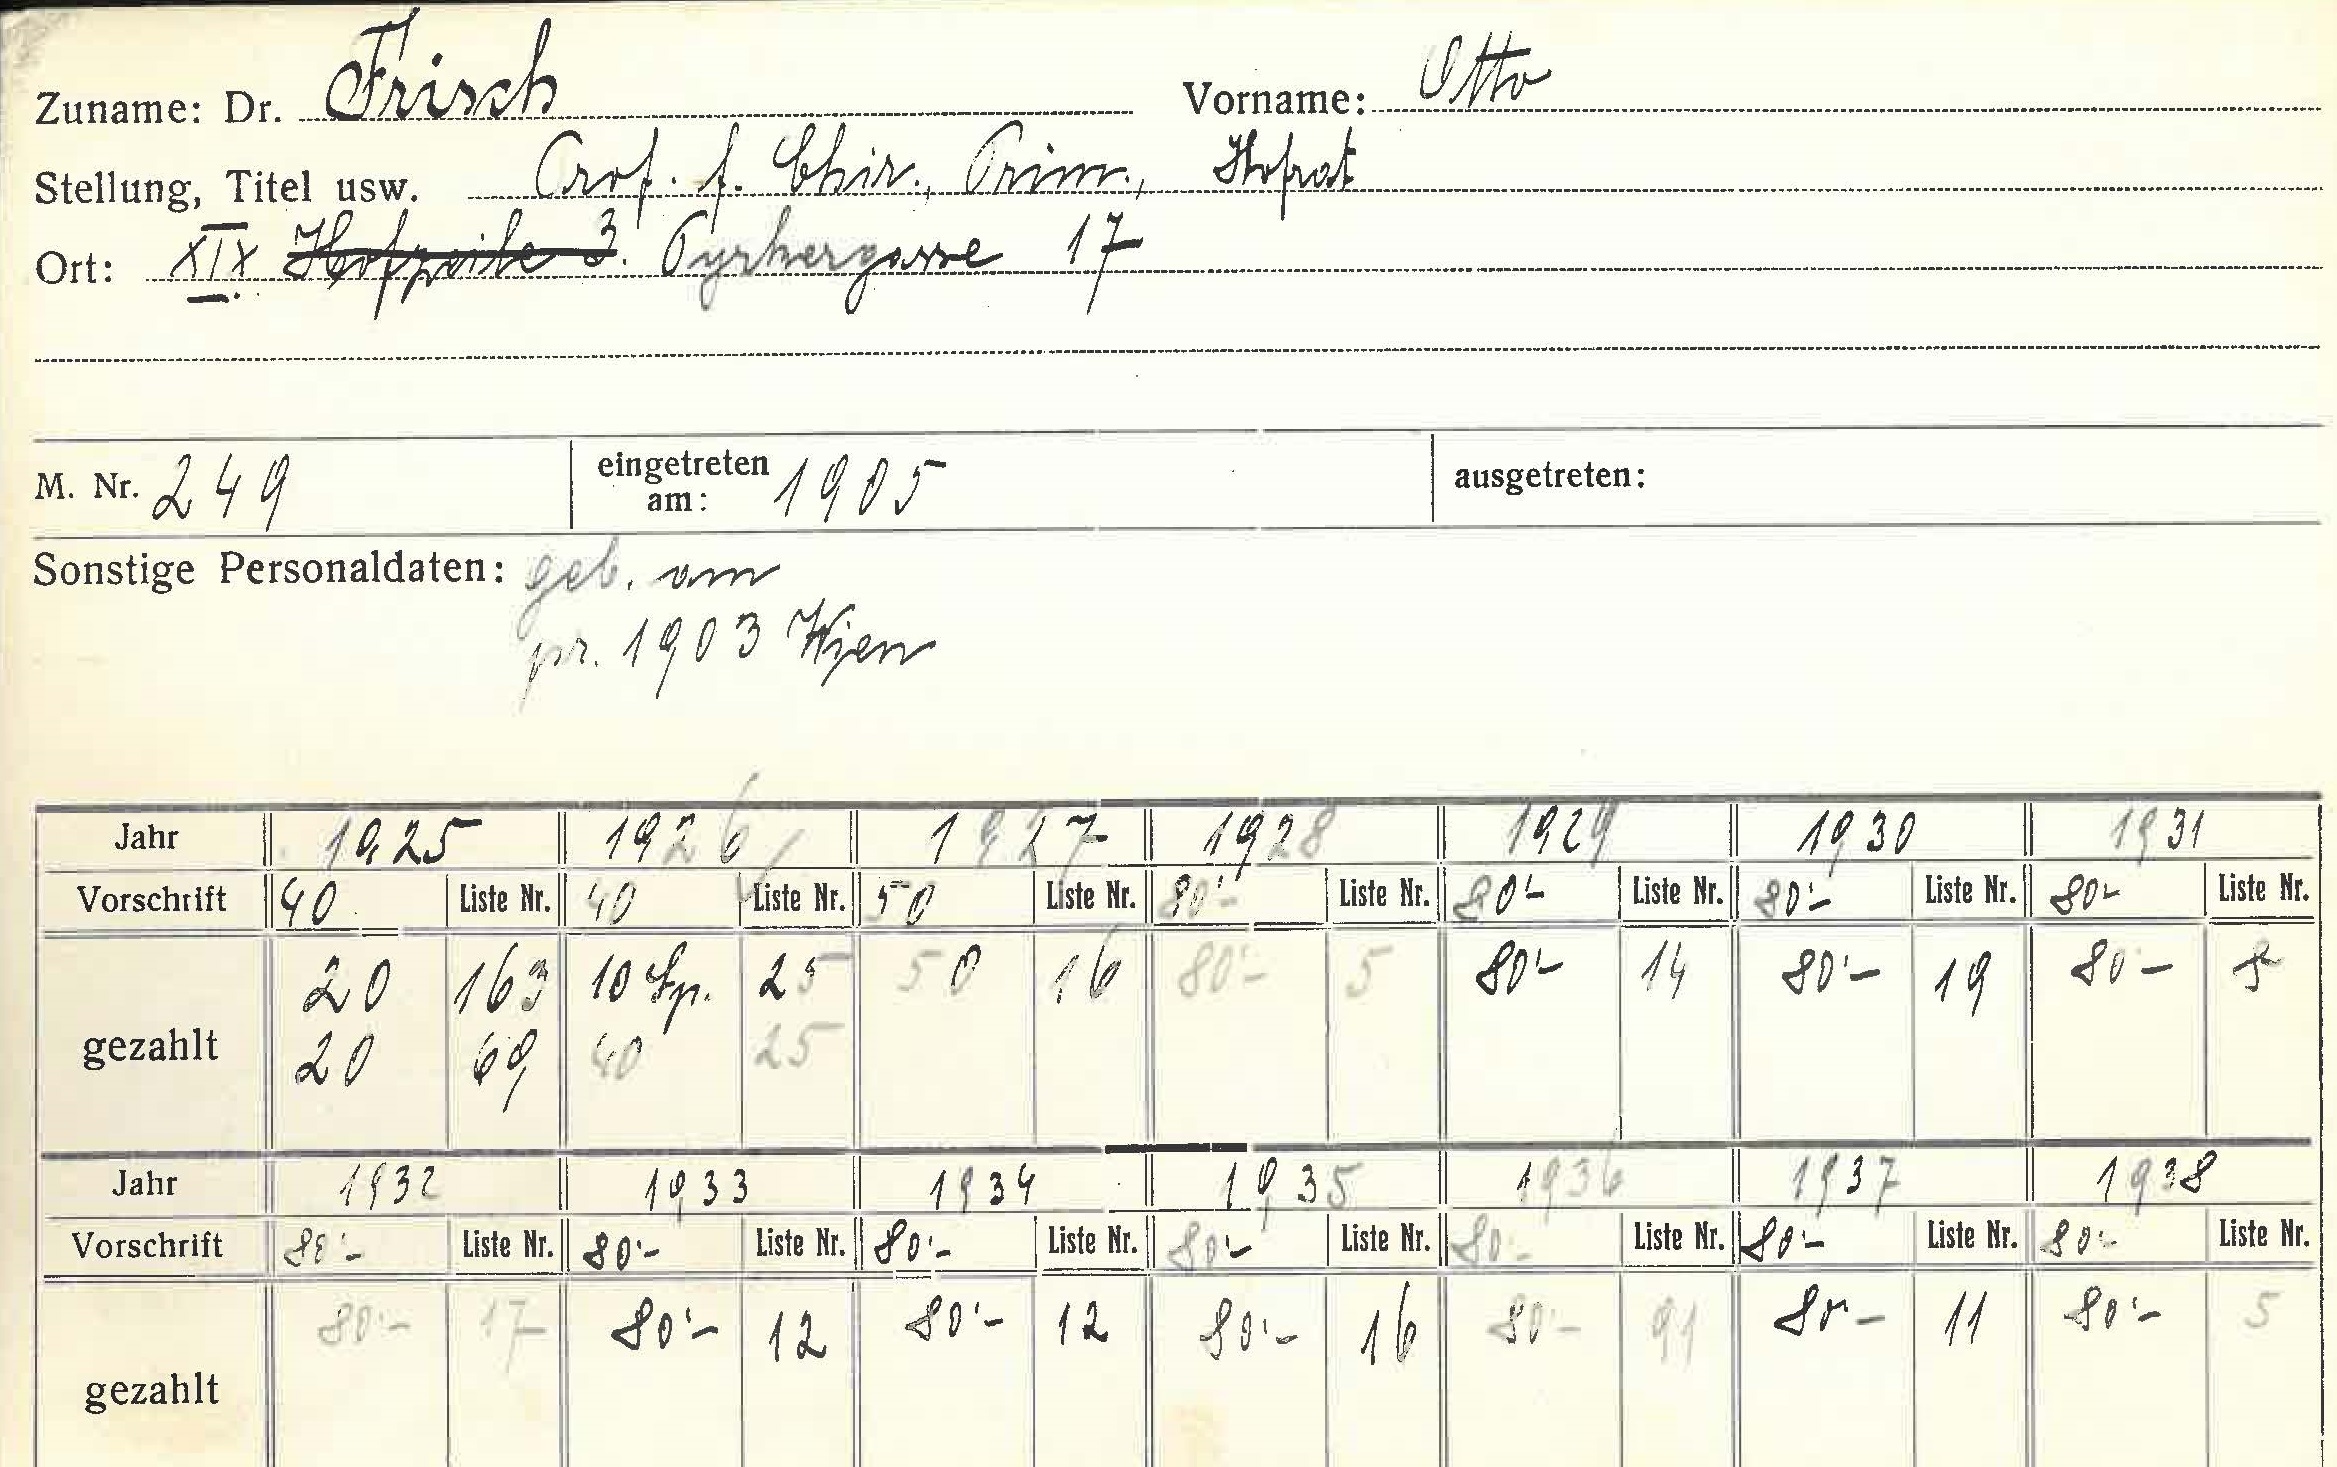 Zuname: Dr. Frisch Vorname: Otto
Stellung, Titel usw. Prof. f. Chir., Prim., Hofrat
Ort: XIX. Hofzeile 3. Pyrkergasse 17
M. Nr. 249 eingetreten am: 1905 ausgetreten:
Sonstige Personaldaten: geb. am
pr. 1903 Wien
Jahr 1925 1926 1927 1928 1929 1930 1931
Vorschrift 40 Liste Nr. 40 Liste Nr. 50 Liste Nr. 80'- Liste Nr. 80'- Liste Nr. 80'- Liste Nr. 80'- Liste Nr.
gezahlt 20 163 10 Sp. 25 50 16 80'- 5 80'- 14 80'- 19 80- 8
20 69 40 25
Jahr 1932 1933 1934 1935 1936 1937 1938
Vorschrift 80'- Liste Nr. 80'- Liste Nr. 80'- Liste Nr. 80'- Liste Nr. 80'- Liste Nr. 80'- Liste Nr. 80'- Liste Nr.
gezahlt 80'- 17 80'- 12 80'- 12 80'- 16 80'- 91 80'- 11 80'- 5